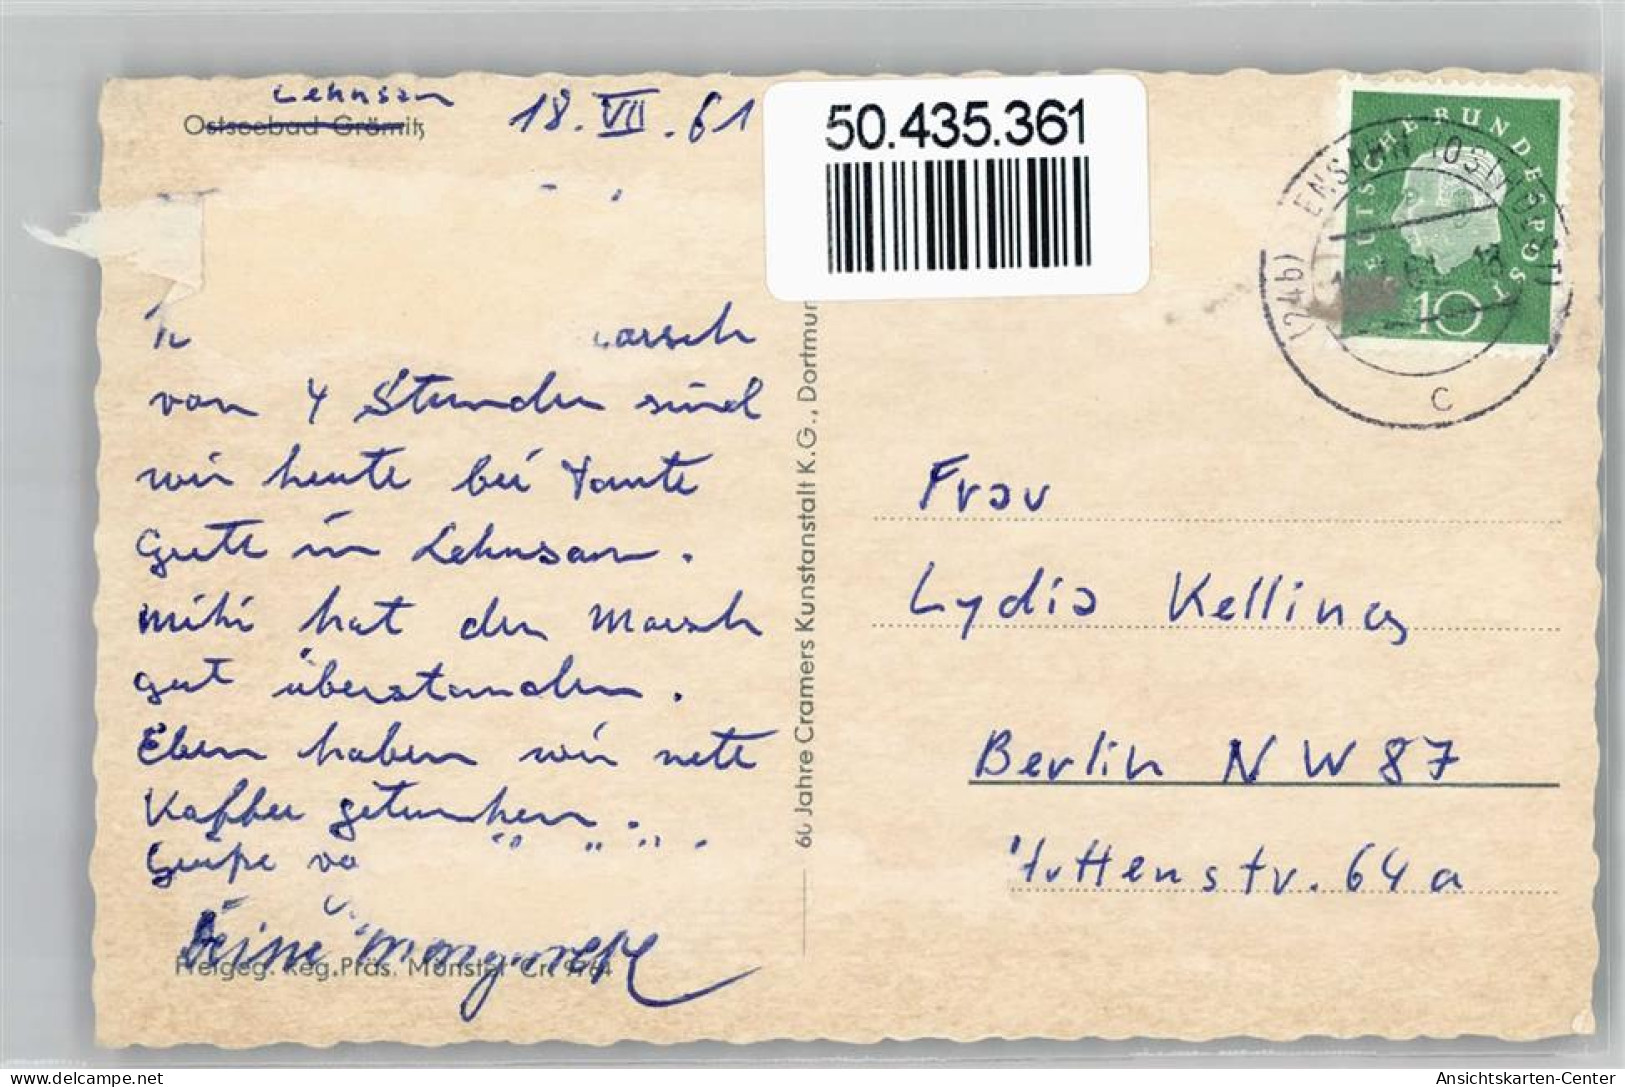 Lehnsan
Ostseebad Grömitz
18. VII. 61
50.435.361
DEUTSCHE BUNDESPOST
10
(24b) LENSAHN (OSTHOLST)
18
c
von 4 Stunden sind
wir heute bei Tante
Grete in Lehnsan.
Miki hat den Marsch
gut überstanden.
Eben haben wir nette
Kaffee getrunken.
Grüße
Deine Margarete
Freigeg. Reg. Präs. Münster Cr. 9764
60 Jahre Cramers Kunstanstalt K.G., Dortmund
Frau
Lydia Kelling
Berlin NW 87
Huttenstr. 64a
Ansichtskarten-Center
delcampe.net